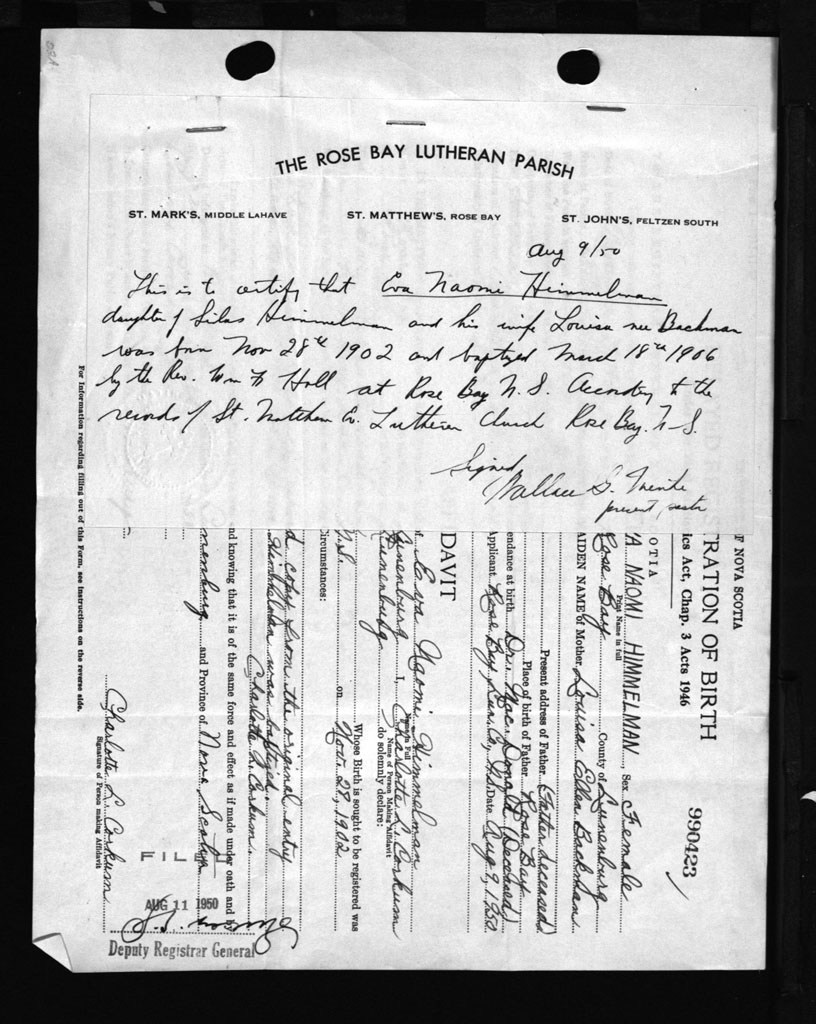 THE ROSE BAY LUTHERAN PARISH
ST. MARK'S, MIDDLE LAHAVE ST. MATTHEW'S, ROSE BAY ST. JOHN'S, FELTZEN SOUTH
Aug 9/50
This is to certify that Eva Naomi Himmelman
daughter of Silas Himmelman and his wife Louisa nee Bachman
was born Nov 28th 1902 and baptized March 18th 1906
by the Rev. Wm Hall at Rose Bay N.S. According to the
records of St. Matthew Ev. Lutheran Church Rose Bay. N-S.
Signed
Wallace G.
present pastor
F NOVA SCOTIA
TRATION OF BIRTH
ics Act, Chap. 3 Acts 1946
990423
OTIA
A NAOMI HIMMELMAN, Sex Female
Print Name in full
Rose Bay County of Lunenburg
AIDEN NAME of Mother Louisa Ellen Backman
Present address of Father Father deceased
Place of birth of Father Rose Bay
endance at birth Dr. Mac Donald (Deceased)
Applicant Rose Bay Lun. Co., N.S. Date Aug 9, 1950
DAVIT
Eva Naomi Himmelman
Name in Full
Lunenburg I, Charlotte L. Corkum
Name of Person Making Affidavit
Lunenburg do solemnly declare:
Whose Birth is sought to be registered was
N.S. on Nov. 28, 1902
ircumstances:
d copy from the original entry
Himmelman was baptized.
Charlotte L. Corkum
nd knowing that it is of the same force and effect as if made under oath and
nenburg and Province of Nova Scotia
Charlotte L. Corkum
Signature of Person making Affidavit
For Information regarding filling out of this Form, see Instructions on the reverse side.
FILED
AUG 11 1950
Deputy Registrar General